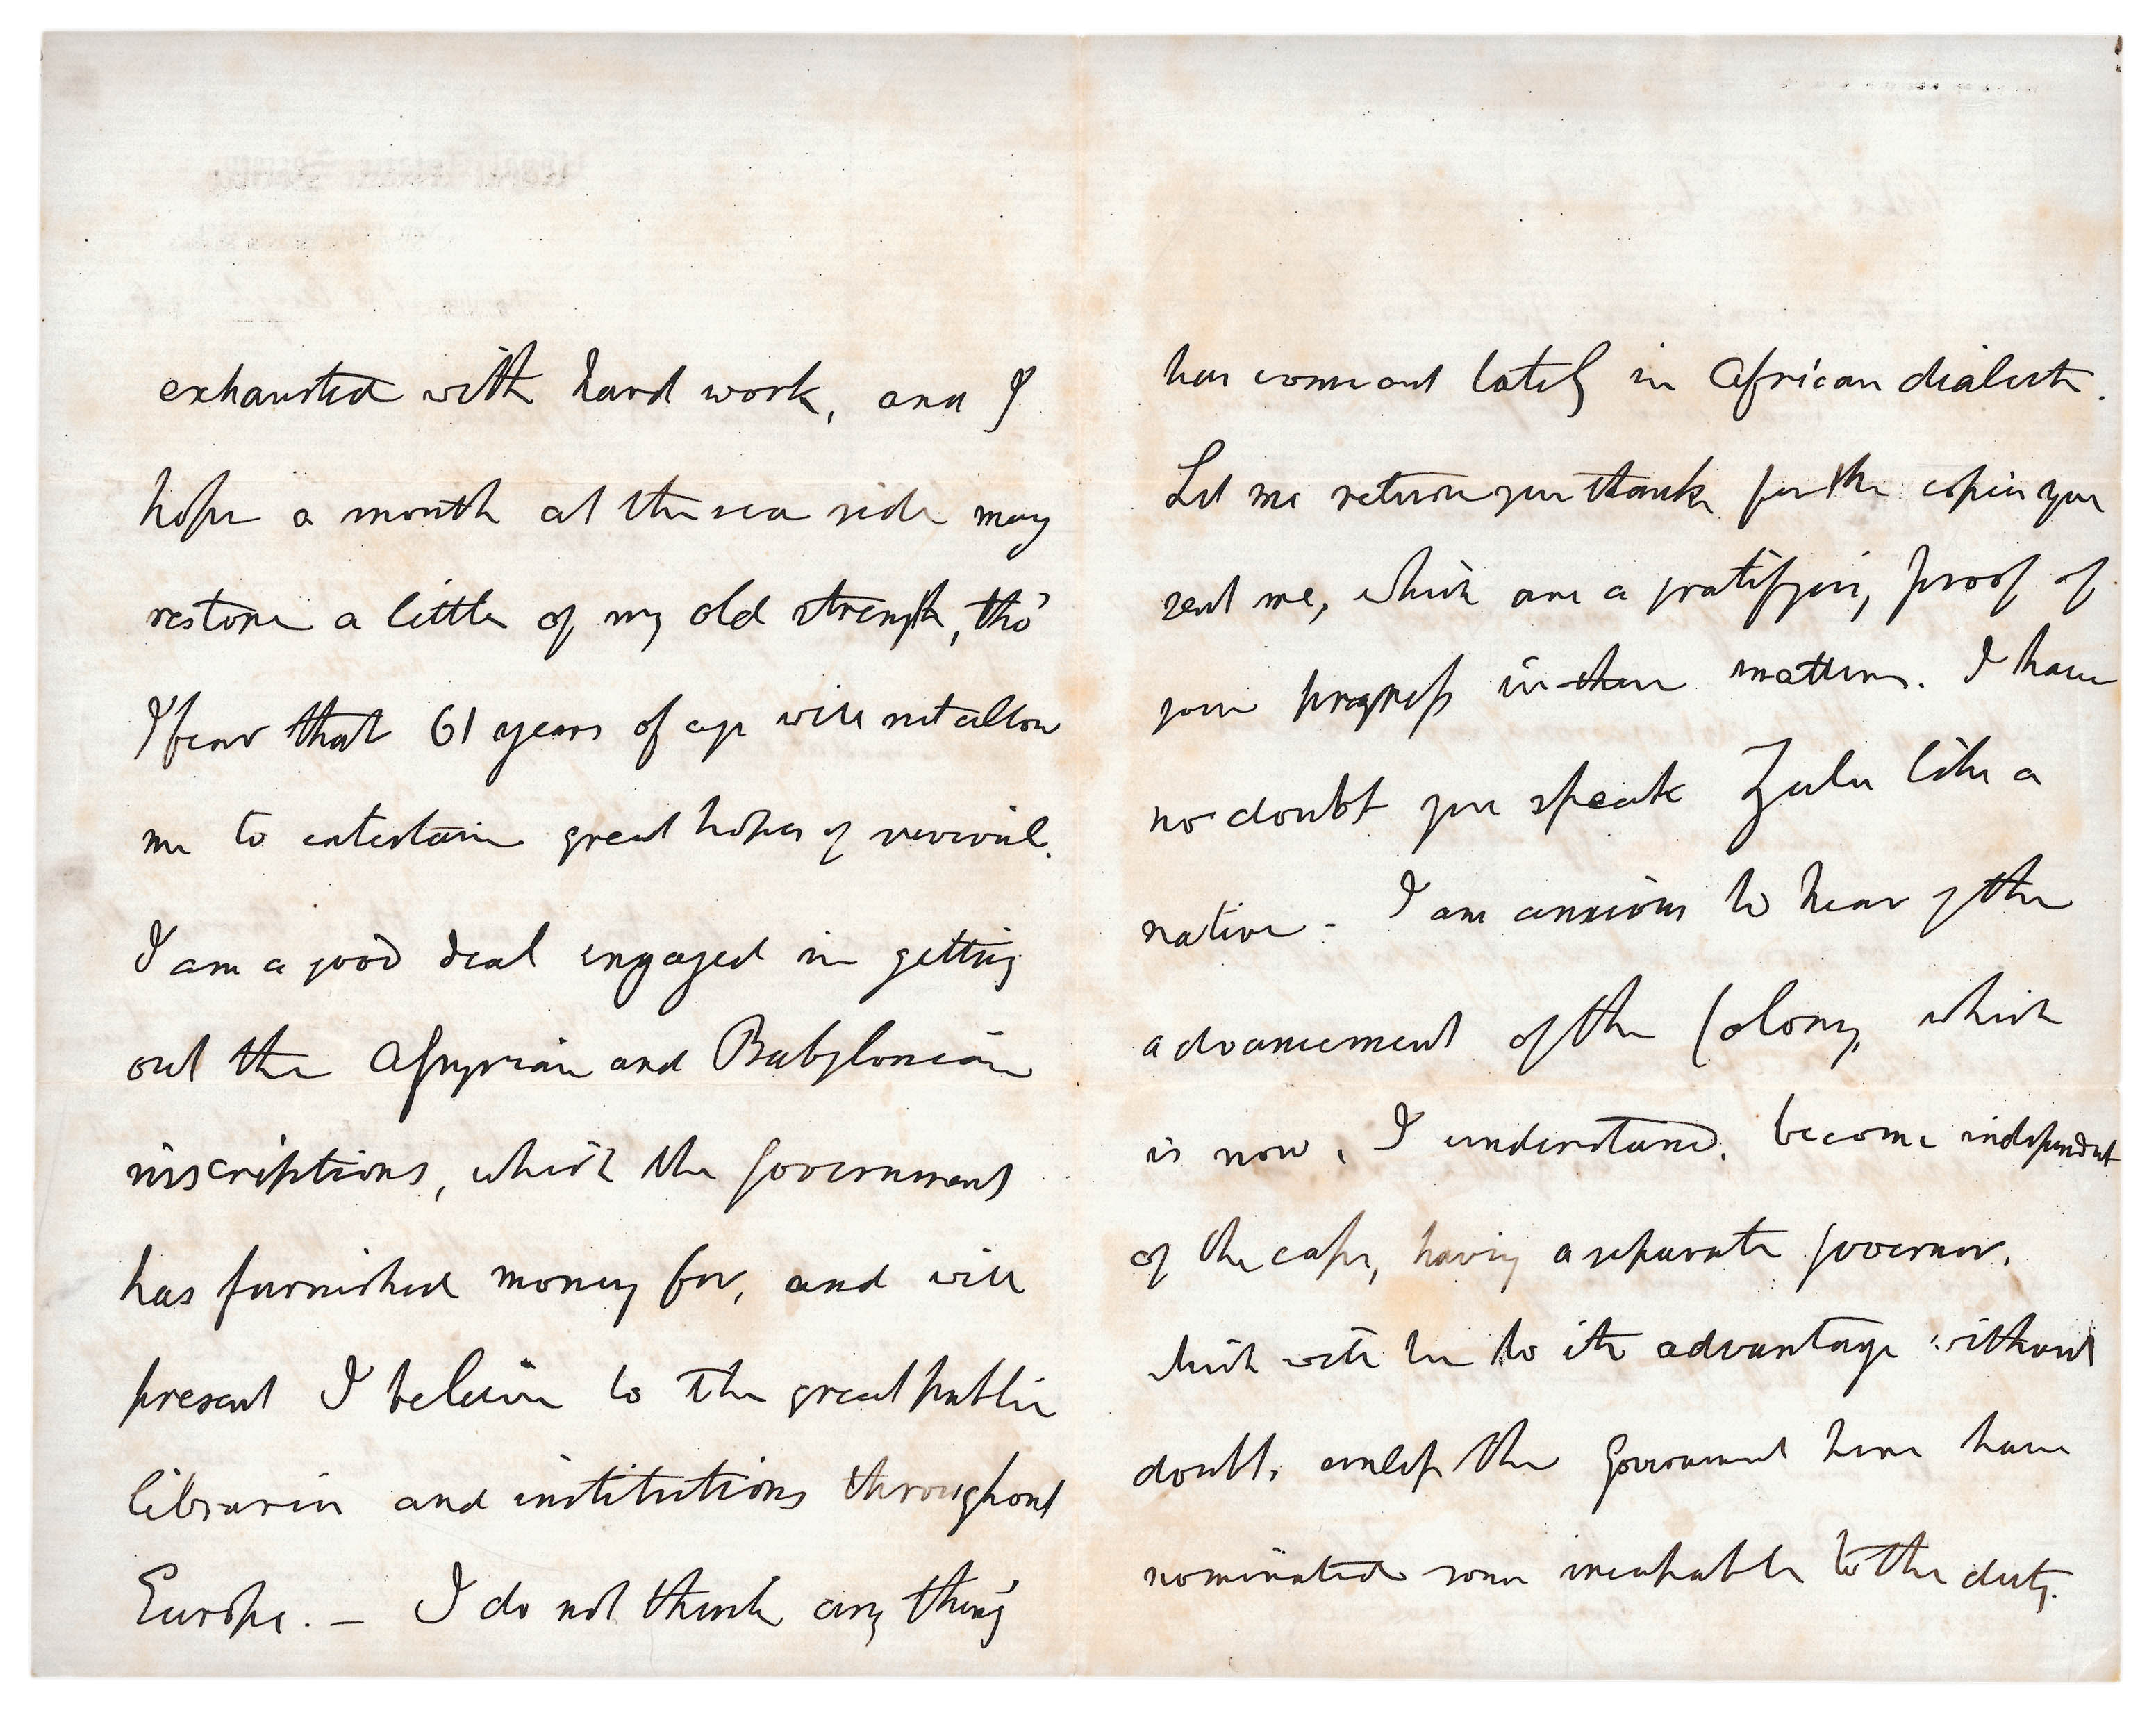 exhausted with hard work, and I
hope a month at the sea side may
restore a little of my old strength, tho'
I fear that 61 years of age will not allow
me to entertain great hopes of revival.
I am a good deal engaged in getting
out the Assyrian and Babylonian
inscriptions, which the Government
has furnished money for, and will
present I believe to the great public
libraries and institutions throughout
Europe. — I do not think any thing
has come out lately in African dialects.
Let me return you thanks for the copies you
sent me, which are a gratifying proof of
your progress in these matters. I have
no doubt you speak Zulu like a
native - I am anxious to hear of the
advancement of the Colony, which
is now, I understand, become independent
of the cape, having a separate governor,
which will be to its advantage without
doubt, unless the Government here have
nominated some incapable to the duty.